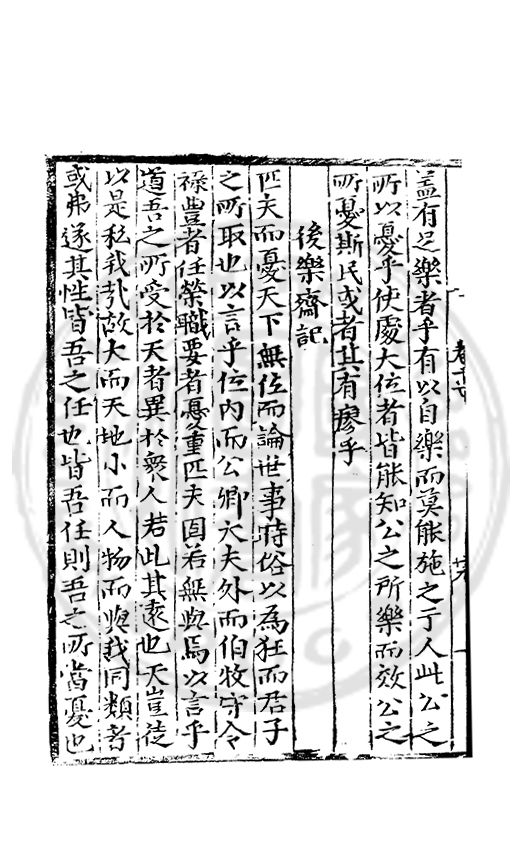 蓋有足樂者乎有以自樂而莫能施之于人此公之
所以憂乎使處大位者皆能知公之所樂而效公之
所憂斯民或者其有瘳乎
後樂齋記
匹夫而憂天下無位而論世事時俗以為狂而君子
之所取也以言乎位內而公卿大夫外而伯牧守令
祿豐者任榮職要者憂重匹夫固若無與焉以言乎
道吾之所受於天者異於衆人若此其遠也天豈徒
以是私我哉故大而天地小而人物而與我同類者
或弗遂其性皆吾之任也皆吾任則吾之所當憂也